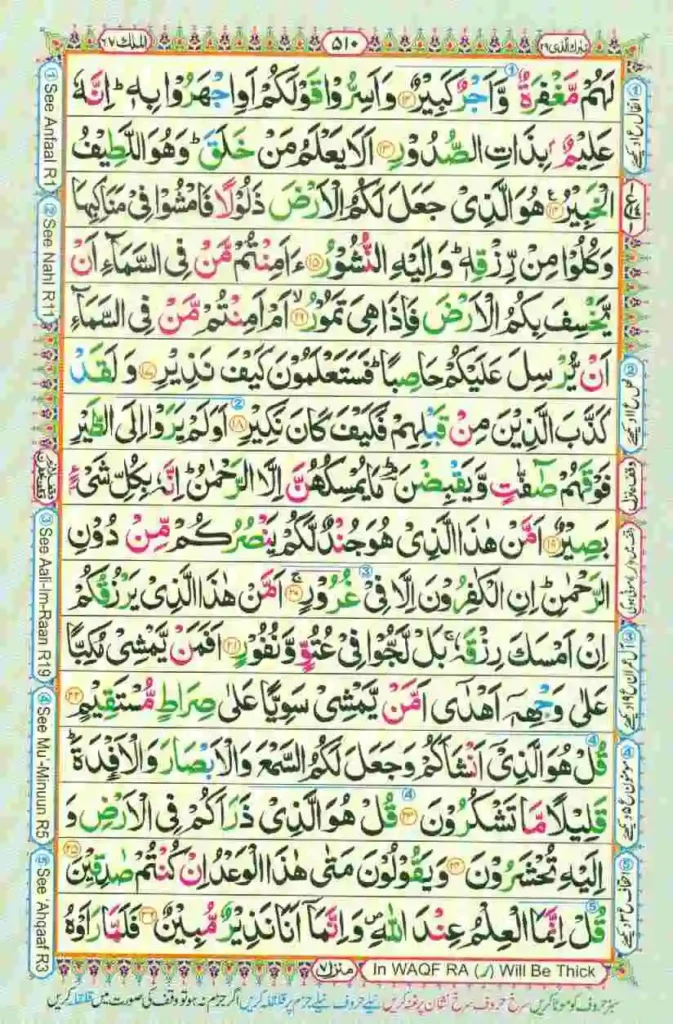 تبٰرك الذی ٢٩
٥١٠
الملك ٦٧
لَهُمْ مَّغْفِرَةٌ وَّاَجْرٌ كَبِيْرٌ ﴿١٢﴾ وَاَسِرُّوْا قَوْلَكُمْ اَوِ اجْهَرُوْا بِهٖ ؕ اِنَّهٗ
عَلِيْمٌۢ بِذَاتِ الصُّدُوْرِ ﴿١٣﴾ اَلَا يَعْلَمُ مَنْ خَلَقَ ؕ وَهُوَ اللَّطِيْفُ
الْخَبِيْرُ ﴿١٤﴾ هُوَ الَّذِيْ جَعَلَ لَكُمُ الْاَرْضَ ذَلُوْلًا فَامْشُوْا فِيْ مَنَاكِبِهَا
وَكُلُوْا مِنْ رِّزْقِهٖ ؕ وَاِلَيْهِ النُّشُوْرُ ﴿١٥﴾ ءَاَمِنْتُمْ مَّنْ فِي السَّمَآءِ اَنْ
يَّخْسِفَ بِكُمُ الْاَرْضَ فَاِذَا هِيَ تَمُوْرُ ﴿١٦﴾ اَمْ اَمِنْتُمْ مَّنْ فِي السَّمَآءِ
اَنْ يُّرْسِلَ عَلَيْكُمْ حَاصِبًا ؕ فَسَتَعْلَمُوْنَ كَيْفَ نَذِيْرِ ﴿١٧﴾ وَلَقَدْ
كَذَّبَ الَّذِيْنَ مِنْ قَبْلِهِمْ فَكَيْفَ كَانَ نَكِيْرِ ﴿١٨﴾ اَوَلَمْ يَرَوْا اِلَى الطَّيْرِ
فَوْقَهُمْ صٰٓفّٰتٍ وَّيَقْبِضْنَ ؔؕ مَا يُمْسِكُهُنَّ اِلَّا الرَّحْمٰنُ ؕ اِنَّهٗ بِكُلِّ شَيْءٍۭ
بَصِيْرٌ ﴿١٩﴾ اَمَّنْ هٰذَا الَّذِيْ هُوَ جُنْدٌ لَّكُمْ يَنْصُرُكُمْ مِّنْ دُوْنِ
الرَّحْمٰنِ ؕ اِنِ الْكٰفِرُوْنَ اِلَّا فِيْ غُرُوْرٍ ﴿٢٠﴾ اَمَّنْ هٰذَا الَّذِيْ يَرْزُقُكُمْ
اِنْ اَمْسَكَ رِزْقَهٗ ۚ بَلْ لَّجُّوْا فِيْ عُتُوٍّ وَّنُفُوْرٍ ﴿٢١﴾ اَفَمَنْ يَّمْشِيْ مُكِبًّا
عَلٰى وَجْهِهٖۤ اَهْدٰۤى اَمَّنْ يَّمْشِيْ سَوِيًّا عَلٰى صِرَاطٍ مُّسْتَقِيْمٍ ﴿٢٢﴾
قُلْ هُوَ الَّذِيْۤ اَنْشَاَكُمْ وَجَعَلَ لَكُمُ السَّمْعَ وَالْاَبْصَارَ وَالْاَفْـِٕدَةَ ؕ
قَلِيْلًا مَّا تَشْكُرُوْنَ ﴿٢٣﴾ قُلْ هُوَ الَّذِيْ ذَرَاَكُمْ فِي الْاَرْضِ وَ
اِلَيْهِ تُحْشَرُوْنَ ﴿٢٤﴾ وَيَقُوْلُوْنَ مَتٰى هٰذَا الْوَعْدُ اِنْ كُنْتُمْ صٰدِقِيْنَ ﴿٢٥﴾
قُلْ اِنَّمَا الْعِلْمُ عِنْدَ اللّٰهِ ۪ وَاِنَّمَاۤ اَنَا نَذِيْرٌ مُّبِيْنٌ ﴿٢٦﴾ فَلَمَّا رَاَوْهُ
① See Anfaal R1
② See Nahl R11
③ See Aali-Im-Raan R19
④ See Mu'-Minuun R5
⑤ See 'Ahqaaf R3
منزل ٧
In WAQF RA (ر) Will Be Thick
سبز حروف کو موٹا کریں سرخ حروف، سرخ نشان پر غنہ کریں نیلے حروف نیلے جزم پر قلقلہ کریں اگر جزم نہ ہو تو وقف کی صورت میں قلقلہ کریں